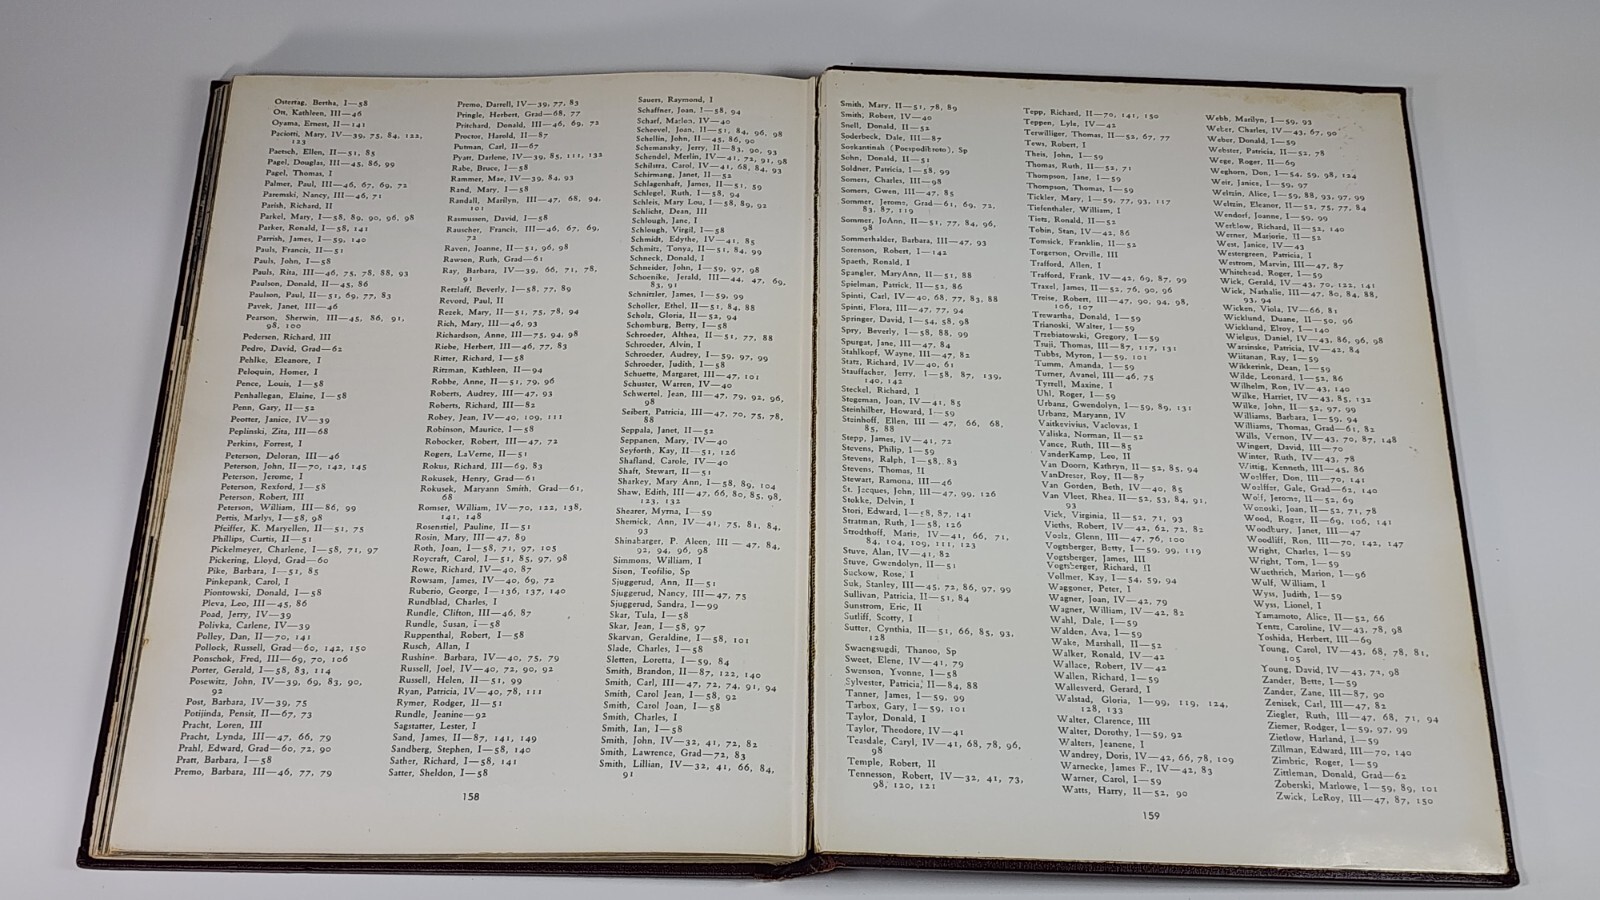 Ostertag, Bertha, I—58
Ott, Kathleen, III—46
Oyama, Ernest, II—141
Paciotti, Mary, IV—39, 75, 84, 122,
123
Paetsch, Ellen, II—51, 85
Pagel, Douglas, III—45, 86, 99
Pagel, Thomas, I
Palmer, Paul, III—46, 67, 69, 72
Paremski, Nancy, III—46, 71
Parish, Richard, II
Parkel, Mary, I—58, 89, 90, 96, 98
Parker, Ronald, I—58, 141
Parrish, James, I—59, 140
Pauls, Francis, II—51
Pauls, John, I—58
Pauls, Rita, III—46, 75, 78, 88, 93
Paulson, Donald, II—45, 86
Paulson, Paul, II—51, 69, 77, 83
Pavek, Janet, III—46
Pearson, Sherwin, III—45, 86, 91,
98, 100
Pedersen, Richard, III
Pedro, David, Grad—62
Pehlke, Eleanore, I
Peloquin, Homer, I
Pence, Louis, I—58
Penhallegan, Elaine, I—58
Penn, Gary, II—52
Peotter, Janice, IV—39
Peplinski, Zita, III—68
Perkins, Forrest, I
Peterson, Deloran, III—46
Peterson, John, II—70, 142, 145
Peterson, Jerome, I
Peterson, Rexford, I—58
Peterson, Robert, III
Peterson, William, III—86, 99
Pettis, Marlys, I—58, 98
Pfeiffer, K. Maryellen, II—51, 75
Phillips, Curtis, II—51
Pickelmeyer, Charlene, I—58, 71, 97
Pickering, Lloyd, Grad—60
Pike, Barbara, I—51, 85
Pinkepank, Carol, I
Piontowski, Donald, I—58
Pleva, Leo, III—45, 86
Poad, Jerry, IV—39
Polivka, Carlene, IV—39
Polley, Dan, II—70, 141
Pollock, Russell, Grad—60, 142, 150
Ponschok, Fred, III—69, 70, 106
Porter, Gerald, I—58, 83, 114
Posewitz, John, IV—39, 69, 83, 90,
92
Post, Barbara, IV—39, 75
Potijinda, Pensit, II—67, 73
Pracht, Loren, III
Pracht, Lynda, III—47, 66, 79
Prahl, Edward, Grad—60, 72, 90
Pratt, Barbara, I—58
Premo, Barbara, III—46, 77, 79
Premo, Darrell, IV—39, 77, 83
Pringle, Herbert, Grad—68, 77
Pritchard, Donald, III—46, 69, 72
Proctor, Harold, II—87
Putman, Carl, II—67
Pyatt, Darlene, IV—39, 85, 111, 132
Rabe, Bruce, I—58
Rammer, Mae, IV—39, 84, 93
Rand, Mary, I—58
Randall, Marilyn, III—47, 68, 94,
101
Rasmussen, David, I—58
Rauscher, Francis, III—46, 67, 69,
72
Raven, Joanne, II—51, 96, 98
Rawson, Ruth, Grad—61
Ray, Barbara, IV—39, 66, 71, 78,
91
Retzlaff, Beverly, I—58, 77, 89
Revord, Paul, II
Rezek, Mary, II—51, 75, 78, 94
Rich, Mary, III—46, 93
Richardson, Anne, III—75, 94, 98
Riebe, Herbert, III—46, 77, 83
Ritter, Richard, I—58
Ritzman, Kathleen, II—94
Robbe, Anne, II—51, 79, 96
Roberts, Audrey, III—47, 93
Roberts, Richard, III—82
Robey, Jean, IV—40, 109, 111
Robinson, Maurice, I—58
Robocker, Robert, III—47, 72
Rogers, LaVerne, II—51
Rokus, Richard, III—69, 83
Rokusek, Henry, Grad—61
Rokusek, Maryann Smith, Grad—61,
68
Romser, William, IV—70, 122, 138,
141, 148
Rosenstiel, Pauline, II—51
Rosin, Mary, III—47, 89
Roth, Joan, I—58, 71, 97, 105
Roycraft, Carol, I—51, 85, 97, 98
Rowe, Richard, IV—40, 87
Rowsam, James, IV—40, 69, 72
Ruberio, George, I—136, 137, 140
Rundblad, Charles, I
Rundle, Clifton, III—46, 87
Rundle, Susan, I—58
Ruppenthal, Robert, I—58
Rusch, Allan, I
Rushing, Barbara, IV—40, 75, 79
Russell, Joel, IV—40, 72, 90, 92
Russell, Helen, II—51, 99
Ryan, Patricia, IV—40, 78, 111
Rymer, Rodger, II—51
Rundle, Jeanine—92
Sagstatter, Lester, I
Sand, James, II—87, 141, 149
Sandberg, Stephen, I—58, 140
Sather, Richard, I—58, 141
Satter, Sheldon, I—58
Sauers, Raymond, I
Schaffner, Joan, I—58, 94
Scharf, Marlon, IV—40
Scheevel, Joan, II—51, 84, 96, 98
Schellin, John, II—45, 86, 90
Schemansky, Jerry, II—83, 90, 93
Schendel, Merlin, IV—41, 72, 91, 98
Schilstra, Carol, IV—41, 68, 84, 93
Schirmang, Janet, II—52
Schlagenhaft, James, II—51, 59
Schlegel, Ruth, I—58, 94
Schleis, Mary Lou, I—58, 89, 92
Schlicht, Dean, III
Schlough, Jane, I
Schlough, Virgil, I—58
Schmidt, Edythe, IV—41, 85
Schmitz, Tonya, II—51, 84, 99
Schneck, Donald, I
Schneider, John, I—59, 97, 98
Schoenike, Jerald, III—44, 47, 69,
83, 91
Schnitzler, James, I—59, 99
Scholler, Ethel, II—51, 84, 88
Scholz, Gloria, II—52, 94
Schomburg, Betty, I—58
Schroeder, Althea, II—51, 77, 88
Schroeder, Alvin, I
Schroeder, Audrey, I—59, 97, 99
Schroeder, Judith, I—58
Schuette, Margaret, III—47, 101
Schuster, Warren, IV—40
Schwertel, Jean, III—47, 79, 92, 96,
98
Seibert, Patricia, III—47, 70, 75, 78,
88
Seppala, Janet, II—52
Seppanen, Mary, IV—40
Seyforth, Kay, II—51, 126
Shafland, Carole, IV—40
Shaft, Stewart, II—51
Sharkey, Mary Ann, I—58, 89, 104
Shaw, Edith, III—47, 66, 80, 85, 98,
123, 132
Shearer, Myrna, I—59
Shemick, Ann, IV—41, 75, 81, 84,
93
Shinabarger, P. Aleen, III—47, 84,
92, 94, 96, 98
Simmons, William, I
Sison, Teofilio, Sp
Sjuggerud, Ann, II—51
Sjuggerud, Nancy, III—47, 75
Sjuggerud, Sandra, I—99
Skar, Tula, I—58
Skar, Jean, I—58, 97
Skarvan, Geraldine, I—58, 101
Slade, Charles, I—58
Sletten, Loretta, I—59, 84
Smith, Brandon, II—87, 122, 140
Smith, Carl, III—47, 72, 74, 91, 94
Smith, Carol Jean, I—58, 92
Smith, Carol Joan, I—58
Smith, Charles, I
Smith, Ian, I—58
Smith, John, IV—32, 41, 72, 82
Smith, Lawrence, Grad—72, 83
Smith, Lillian, IV—32, 41, 66, 84,
91
158
Smith, Mary, II—51, 78, 89
Smith, Robert, IV—40
Snell, Donald, II—52
Soderbeck, Dale, III—87
Soekantinah (Poespodihroto), Sp
Sohn, Donald, II—51
Soldner, Patricia, I—58, 99
Somers, Charles, III—98
Somers, Gwen, III—47, 85
Sommer, Jerome, Grad—61, 69, 72,
83, 87, 119
Sommer, JoAnn, II—51, 77, 84, 96,
98
Sommerhalder, Barbara, III—47, 93
Sorenson, Robert, I—142
Spaeth, Ronald, I
Spangler, MaryAnn, II—51, 88
Spielman, Patrick, II—52, 86
Spinti, Carl, IV—40, 68, 77, 83, 88
Spinti, Flora, III—47, 77, 94
Springer, David, I—54, 58, 98
Spry, Beverly, I—58, 88, 99
Spurgat, Jane, III—47, 84
Stahlkopf, Wayne, III—47, 82
Statz, Richard, IV—40, 61
Stauffacher, Jerry, I—58, 87, 139,
140, 142
Steckel, Richard, I
Stegeman, Joan, IV—41, 85
Steinhilber, Howard, I—59
Steinhoff, Ellen, III—47, 66, 68,
85, 88
Stepp, James, IV—41, 72
Stevens, Philip, I—59
Stevens, Ralph, I—58, 83
Stevens, Thomas, II
Stewart, Ramona, III—46
St. Jacques, John, III—47, 99, 126
Stokke, Delvin, I
Stori, Edward, I—58, 87, 141
Stratman, Ruth, I—58, 126
Strodthoff, Marie, IV—41, 66, 71,
84, 104, 109, 111, 123
Stuve, Alan, IV—41, 82
Stuve, Gwendolyn, II—51
Suckow, Rose, I
Suk, Stanley, III—45, 72, 86, 97, 99
Sullivan, Patricia, II—51, 84
Sunstrom, Eric, II
Sutliff, Scotty, I
Sutter, Cynthia, II—51, 66, 85, 93,
128
Swaengsugdi, Thanoo, Sp
Sweet, Elene, IV—41, 79
Swenson, Yvonne, I—58
Sylvester, Patricia, II—84, 88
Tanner, James, I—59, 99
Tarbox, Gary, I—59, 101
Taylor, Donald, I
Taylor, Theodore, IV—41
Teasdale, Caryl, IV—41, 68, 78, 96,
98
Temple, Robert, II
Tennesson, Robert, IV—32, 41, 73,
98, 120, 121
Tepp, Richard, II—70, 141, 150
Teppen, Lyle, IV—42
Terwilliger, Thomas, II—52, 67, 77
Tews, Robert, I
Theis, John, I—59
Thomas, Ruth, II—52, 71
Thompson, Jane, I—59
Thompson, Thomas, I—59
Tickler, Mary, I—59, 77, 93, 117
Tiefenthaler, William, I
Tietz, Ronald, II—52
Tobin, Stan, IV—42, 86
Tomsick, Franklin, II—52
Torgerson, Orville, III
Trafford, Allen, I
Trafford, Frank, IV—42, 69, 87, 99
Traxel, James, II—52, 76, 90, 96
Treise, Robert, III—47, 90, 94, 98,
106, 107
Trewartha, Donald, I—59
Trianoski, Walter, I—59
Trzebiatowski, Gregory, I—59
Truji, Thomas, III—87, 117, 131
Tubbs, Myron, I—59, 101
Tumm, Amanda, I—59
Turner, Avanel, III—46, 75
Tyrrell, Maxine, I
Uhl, Roger, I—59
Urbanz, Gwendolyn, I—59, 89, 131
Urbanz, Maryann, IV
Vaitkevivius, Vaclovas, I
Valiska, Norman, II—52
Vance, Ruth, III—85
VanderKamp, Leo, II
Van Doorn, Kathryn, II—52, 85, 94
VanDreser, Roy, II—87
Van Gorden, Beth, IV—40, 85
Van Vleet, Rhea, II—52, 53, 84, 91,
93
Vick, Virginia, II—52, 71, 93
Vieths, Robert, IV—42, 62, 72, 82
Voelz, Glenn, III—47, 76, 100
Vogtsberger, Betty, I—59, 99, 119
Vogtsberger, James, III
Vogtsberger, Richard, II
Vollmer, Kay, I—54, 59, 94
Waggoner, Peter, I
Wagner, Joan, IV—42, 79
Wagner, William, IV—42, 82
Wahl, Dale, I—59
Walden, Ava, I—59
Wake, Marshall, II—52
Walker, Ronald, IV—42
Wallace, Robert, IV—42
Wallen, Richard, I—59
Wallesverd, Gerard, I
Walstad, Gloria, I—99, 119, 124,
128, 133
Walter, Clarence, III
Walter, Dorothy, I—59, 92
Walters, Jeanene, I
Wandrey, Doris, IV—42, 66, 78, 109
Warnecke, James F., IV—42, 83
Warner, Carol, I—59
Watts, Harry, II—52, 90
Webb, Marilyn, I—59, 93
Weber, Charles, IV—43, 67, 90
Weber, Donald, I—59
Webster, Patricia, II—52, 78
Wege, Roger, II—69
Weghorn, Don, I—54, 59, 98, 124
Weir, Janice, I—59, 97
Weltzin, Alice, I—59, 88, 93, 97, 99
Weltzin, Eleanor, II—52, 75, 77, 84
Wendorf, Joanne, I—59, 99
Werblow, Richard, II—52, 140
Werner, Marjorie, II—52
West, Janice, IV—43
Westergreen, Patricia, I
Westrom, Marvin, III—47, 87
Whitehead, Roger, I—59
Wick, Gerald, IV—43, 70, 122, 141
Wick, Nathalie, III—47, 80, 84, 88,
93, 94
Wicken, Viola, IV—66, 81
Wicklund, Duane, II—50, 96
Wicklund, Elroy, I—140
Wielgus, Daniel, IV—43, 86, 96, 98
Warsinske, Patricia, IV—42, 84
Wiitanan, Ray, I—59
Wikkerink, Dean, I—59
Wilde, Leonard, I—52, 86
Wilhelm, Ron, IV—43, 140
Wilke, Harriet, IV—43, 85, 132
Wilke, John, II—52, 97, 99
Williams, Barbara, I—59, 94
Williams, Thomas, Grad—61, 82
Wills, Vernon, IV—43, 70, 87, 148
Wingert, David, III—70
Winter, Ruth, IV—43, 78
Wittig, Kenneth, III—45, 86
Woelffer, Don, III—70, 141
Woelffer, Gale, Grad—62, 140
Wolf, Jerome, II—52, 69
Wonoski, Joan, II—52, 71, 78
Wood, Roger, II—69, 106, 141
Woodbury, Janet, III—47
Woodliff, Ron, III—70, 142, 147
Wright, Charles, I—59
Wright, Tom, I—59
Wuethrich, Marion, I—96
Wulf, William, I
Wyss, Judith, I—59
Wyss, Lionel, I
Yamamoto, Alice, II—52, 66
Yentz, Caroline, IV—43, 78, 98
Yoshida, Herbert, III—69
Young, Carol, IV—43, 68, 78, 81,
105
Young, David, IV—43, 72, 98
Zander, Bette, I—59
Zander, Zane, III—87, 90
Zenisek, Carl, III—47, 82
Ziegler, Ruth, III—47, 68, 71, 94
Ziemer, Rodger, I—59, 97, 99
Zietlow, Harland, I—59
Zillman, Edward, III—70, 140
Zimbric, Roger, I—59
Zittleman, Donald, Grad—62
Zoberski, Marlowe, I—59, 89, 101
Zwick, LeRoy, III—47, 87, 150
159